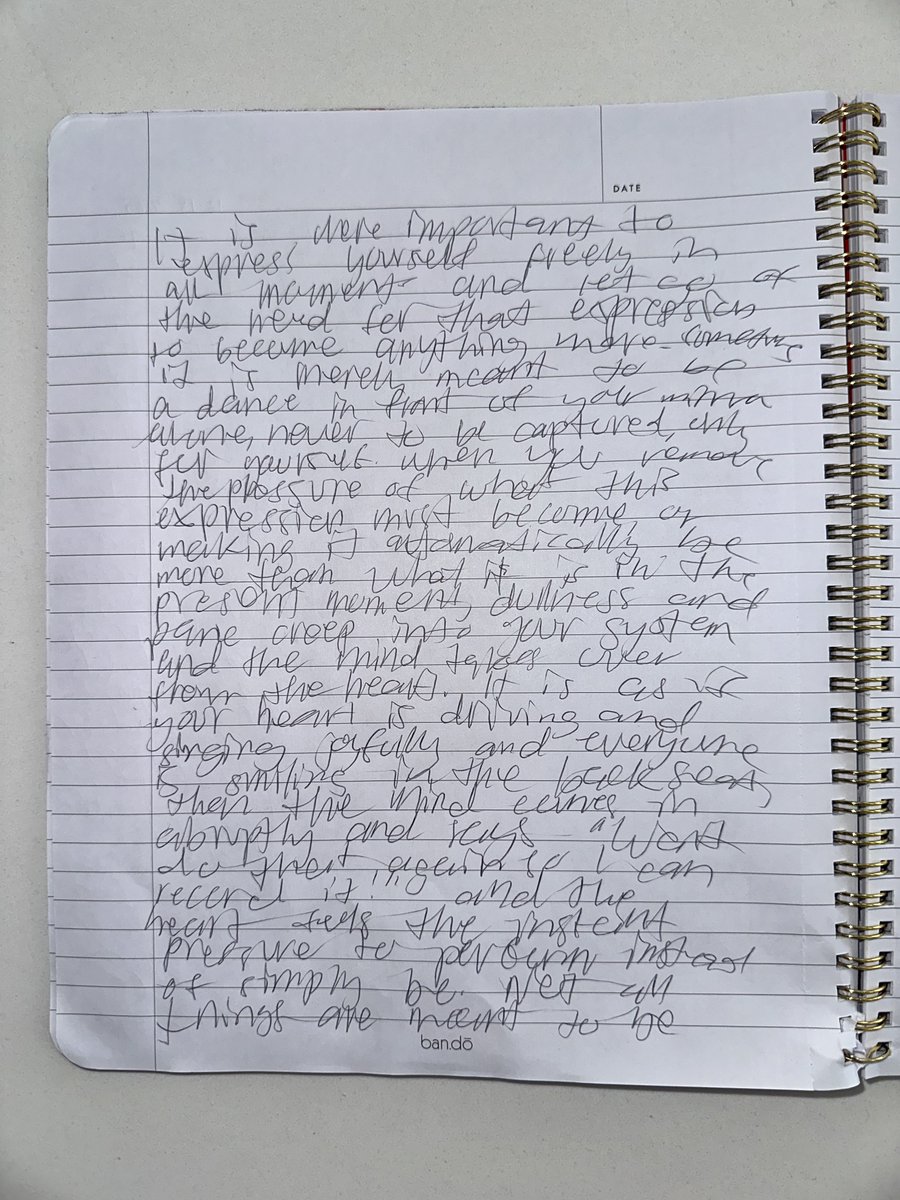 DATE
It is more important to
express yourself freely in
all moments and let go of
the need for that expression
to become anything more. Sometimes
it is merely meant to be
a dance in front of your mirror
alone, never to be captured, only
for yourself. When you remove
the pressure of what this
expression must become or
making it automatically be
more than what it is in the
present moment, dullness and
creep into your system
and the mind takes over
from the heart. It is as if
your heart is driving and
singing joyfully and everyone
is smiling in the backseat,
then the mind comes in
abruptly and says "Wait
do that again so I can
record it!" and the
heart feels the instant
pressure to perform instead
of simply be. Not all
things are meant to be
ban.dō